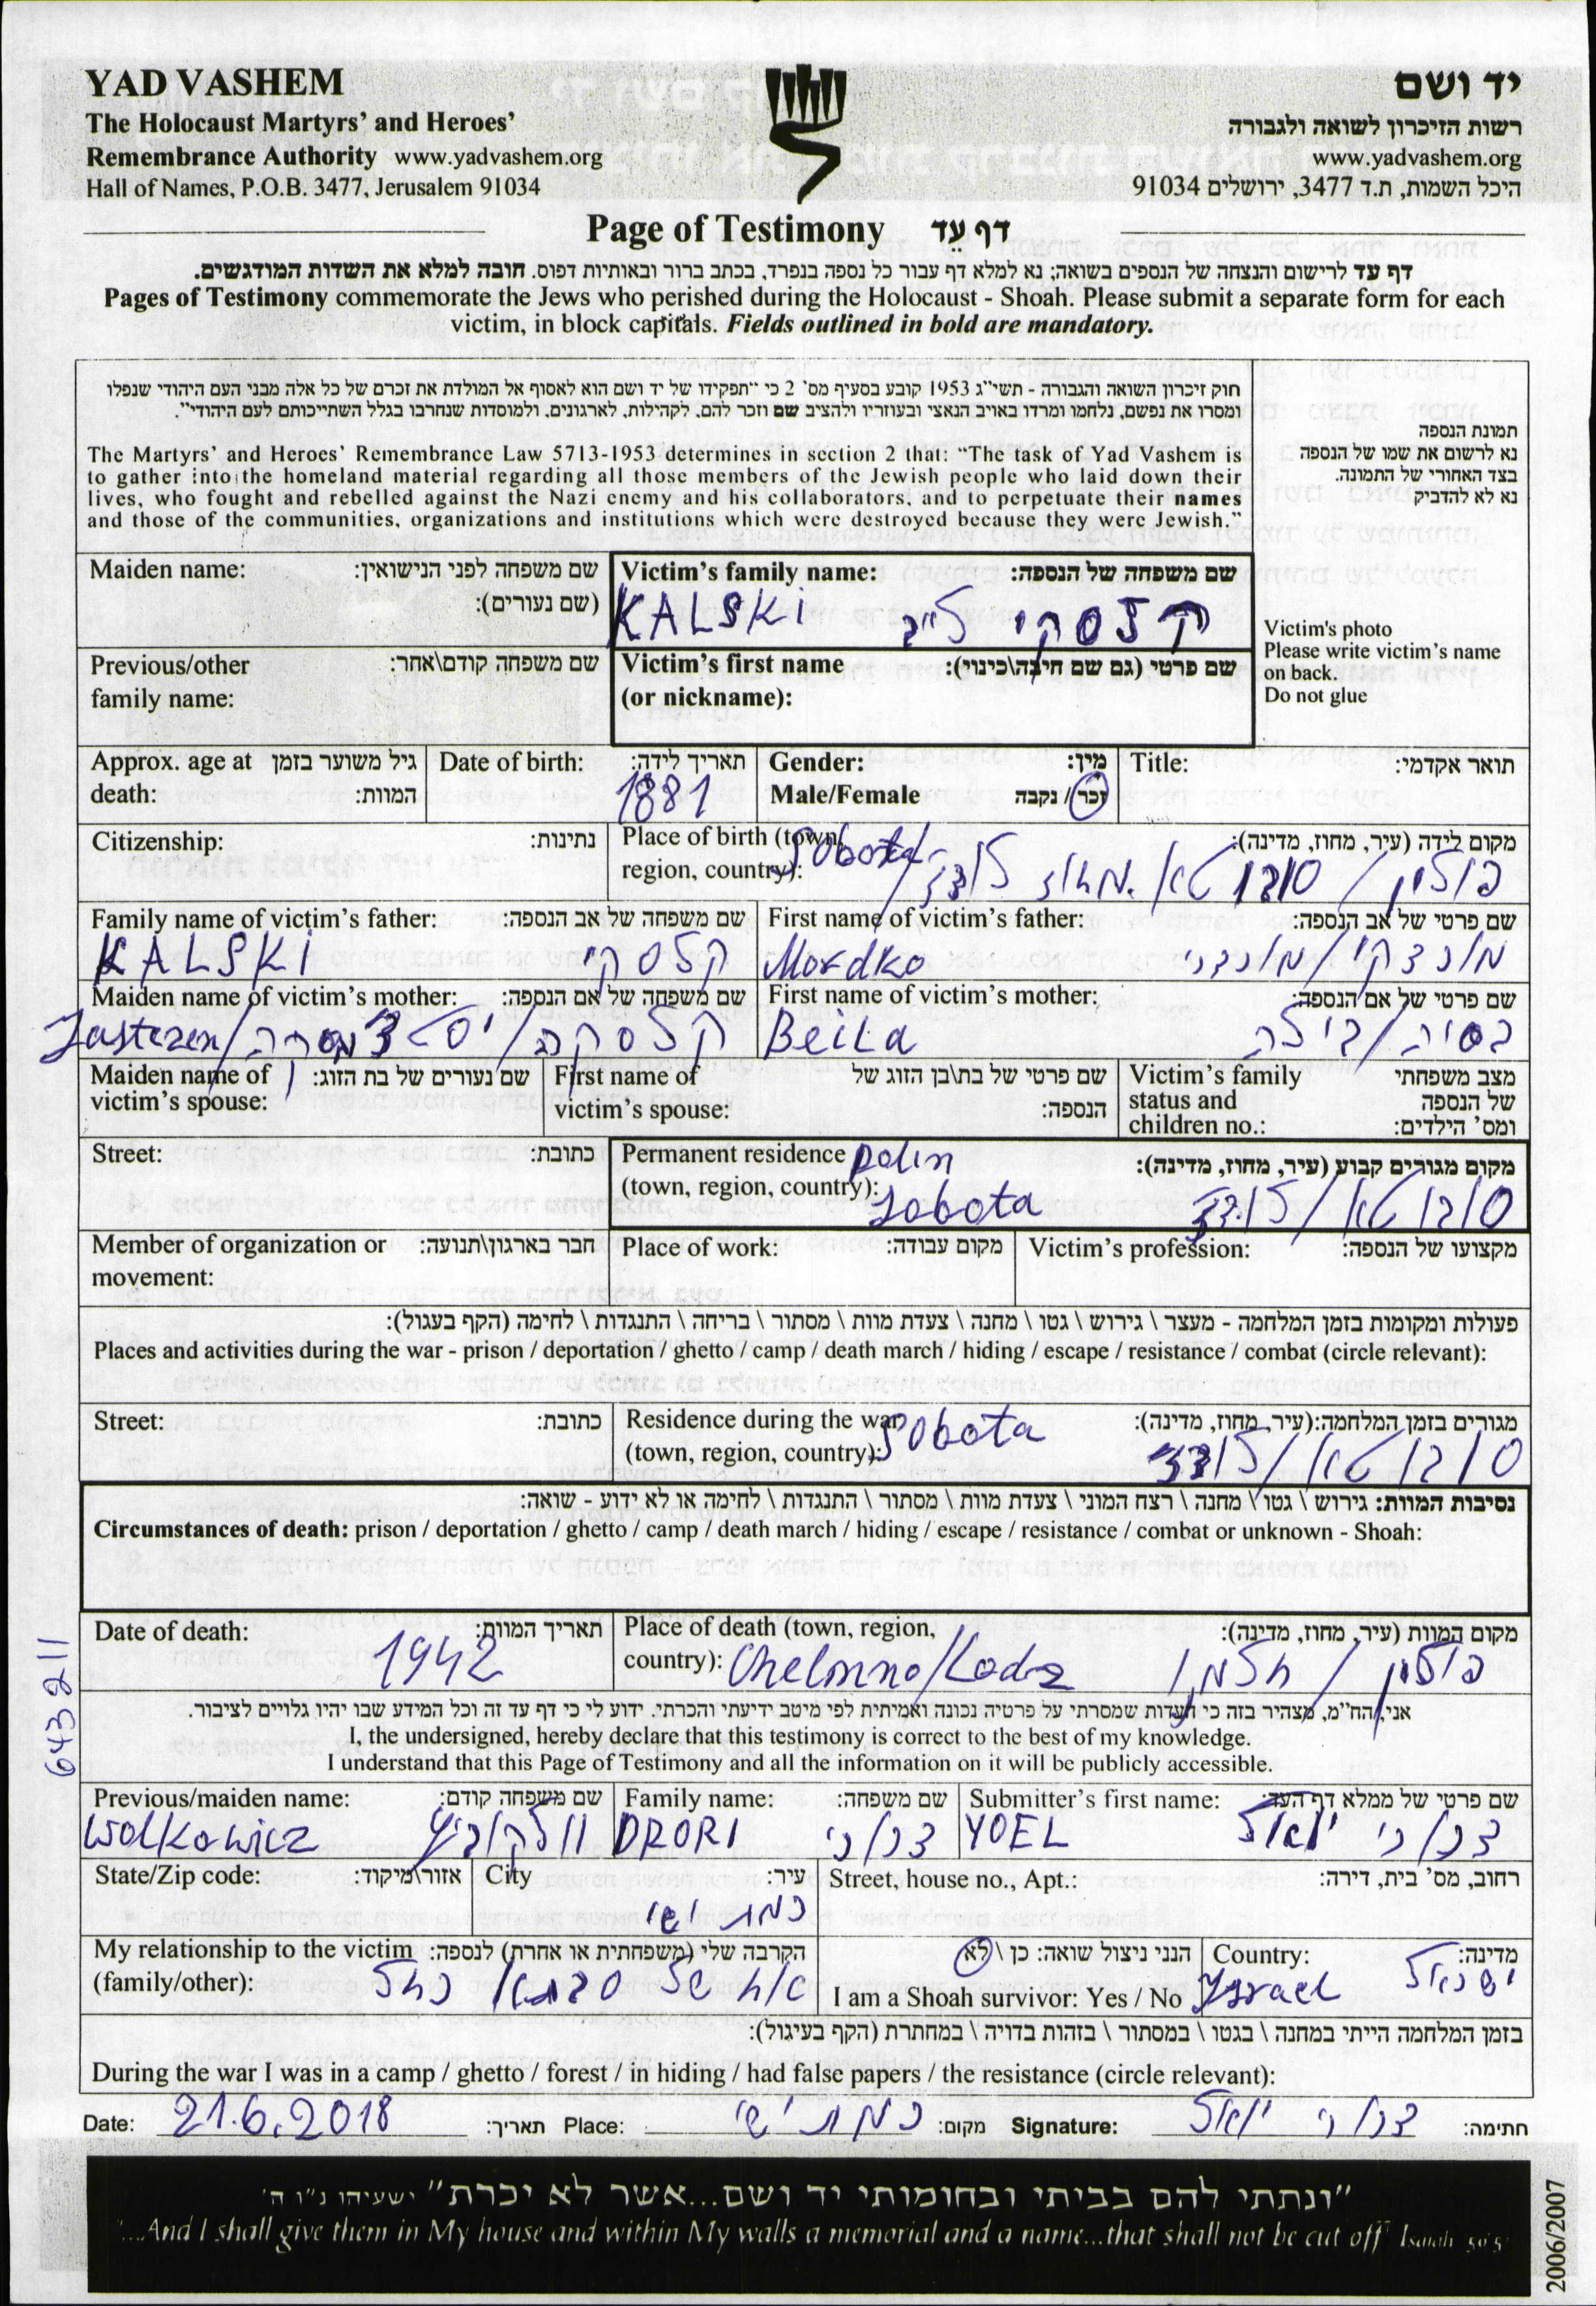 YAD VASHEM
The Holocaust Martyrs' and Heroes'
Remembrance Authority www.yadvashem.org
Hall of Names, P.O.B. 3477, Jerusalem 91034
יד ושם
רשות הזיכרון לשואה ולגבורה
www.yadvashem.org
היכל השמות, ת.ד 3477, ירושלים 91034
Page of Testimony דף עֵד
דף עד לרישום והנצחה של הנספים בשואה; נא למלא דף עבור כל נספה בנפרד, בכתב ברור ובאותיות דפוס. חובה למלא את השדות המודגשים.
Pages of Testimony commemorate the Jews who perished during the Holocaust - Shoah. Please submit a separate form for each
victim, in block capitals. Fields outlined in bold are mandatory.
חוק זיכרון השואה והגבורה - תשי״ג 1953 קובע בסעיף מס' 2 כי ״תפקידו של יד ושם הוא לאסוף אל המולדת את זכרם של כל אלה מבני העם היהודי שנפלו
ומסרו את נפשם, נלחמו ומרדו באויב הנאצי ובעוזריו ולהציב שם וזכר להם, לקהילות, לארגונים, ולמוסדות שנחרבו בגלל השתייכותם לעם היהודי״.
The Martyrs' and Heroes' Remembrance Law 5713-1953 determines in section 2 that: "The task of Yad Vashem is
to gather into the homeland material regarding all those members of the Jewish people who laid down their
lives, who fought and rebelled against the Nazi enemy and his collaborators, and to perpetuate their names
and those of the communities, organizations and institutions which were destroyed because they were Jewish."
תמונת הנספה
נא לרשום את שמו של הנספה
בצד האחורי של התמונה.
נא לא להדביק
Victim's photo
Please write victim's name
on back.
Do not glue
Maiden name: שם משפחה לפני הנישואין:
(שם נעורים):
Victim's family name: שם משפחה של הנספה:
KALSKI קלסקי לייב
Previous/other שם משפחה קודם\אחר:
family name:
Victim's first name שם פרטי (גם שם חיבה\כינוי):
(or nickname):
Approx. age at גיל משוער בזמן
death: המוות:
Date of birth: תאריך לידה:
1881
Gender: מין:
Male/Female זכר / נקבה
Title: תואר אקדמי:
Citizenship: נתינות:
Place of birth (town, מקום לידה (עיר, מחוז, מדינה):
region, country): Sobota פולין / סובוטא / מחוז לודז
Family name of victim's father: שם משפחה של אב הנספה:
KALSKI קלסקי
First name of victim's father: שם פרטי של אב הנספה:
Mordko מורדקו / מורדכי
Maiden name of victim's mother: שם משפחה של אם הנספה:
קלסקה
First name of victim's mother: שם פרטי של אם הנספה:
Beila בסיה / בילה
Maiden name of שם נעורים של בת הזוג:
victim's spouse:
First name of שם פרטי של בת\בן הזוג של
victim's spouse: הנספה:
Victim's family מצב משפחתי
status and של הנספה
children no.: ומס' הילדים:
Street: כתובת:
Permanent residence polin מקום מגורים קבוע (עיר, מחוז, מדינה):
(town, region, country): Sobota סובוטא / לודז
Member of organization or חבר בארגון\תנועה:
movement:
Place of work: מקום עבודה:
Victim's profession: מקצועו של הנספה:
פעולות ומקומות בזמן המלחמה - מעצר \ גירוש \ גטו \ מחנה \ צעדת מוות \ מסתור \ בריחה \ התנגדות \ לחימה (הקף בעגול):
Places and activities during the war - prison / deportation / ghetto / camp / death march / hiding / escape / resistance / combat (circle relevant):
Street: כתובת:
Residence during the war מגורים בזמן המלחמה:(עיר, מחוז, מדינה):
(town, region, country): Sobota סובוטא / לודז
נסיבות המוות: גירוש \ גטו \ מחנה \ רצח המוני \ צעדת מוות \ מסתור \ התנגדות \ לחימה או לא ידוע - שואה:
Circumstances of death: prison / deportation / ghetto / camp / death march / hiding / escape / resistance / combat or unknown - Shoah:
Date of death: תאריך המוות:
1942
Place of death (town, region, מקום המוות (עיר, מחוז, מדינה):
country): Chelmno/Lodz פולין / חלמנו
אני, הח״מ, מצהיר בזה כי העדות שמסרתי על פרטיה נכונה ואמיתית לפי מיטב ידיעתי והכרתי. ידוע לי כי דף עד זה וכל המידע שבו יהיו גלויים לציבור.
I, the undersigned, hereby declare that this testimony is correct to the best of my knowledge.
I understand that this Page of Testimony and all the information on it will be publicly accessible.
Previous/maiden name: שם משפחה קודם:
Wolkowicz וולקוביץ
Family name: שם משפחה:
DRORI דרורי
Submitter's first name: שם פרטי של ממלא דף העד:
YOEL דרורי יואל
State/Zip code: אזור\מיקוד:
City עיר:
רמת ישי
Street, house no., Apt.: רחוב, מס' בית, דירה:
My relationship to the victim הקרבה שלי (משפחתית או אחרת) לנספה:
(family/other): אח של סבתא רחל
הנני ניצול שואה: כן \ לא
I am a Shoah survivor: Yes / No
Country: מדינה:
Ysrael ישראל
בזמן המלחמה הייתי במחנה \ בגטו \ במסתור \ בזהות בדויה \ במחתרת (הקף בעיגול):
During the war I was in a camp / ghetto / forest / in hiding / had false papers / the resistance (circle relevant):
Date: 21.6.2018 תאריך: Place: רמת ישי מקום: Signature: דרורי יואל חתימה:
״ונתתי להם בביתי ובחומותי יד ושם...אשר לא יכרת״ ישעיהו נ״ו ה'
"...And I shall give them in My house and within My walls a memorial and a name...that shall not be cut off" Isaiah 56:5
643211
2006/2007